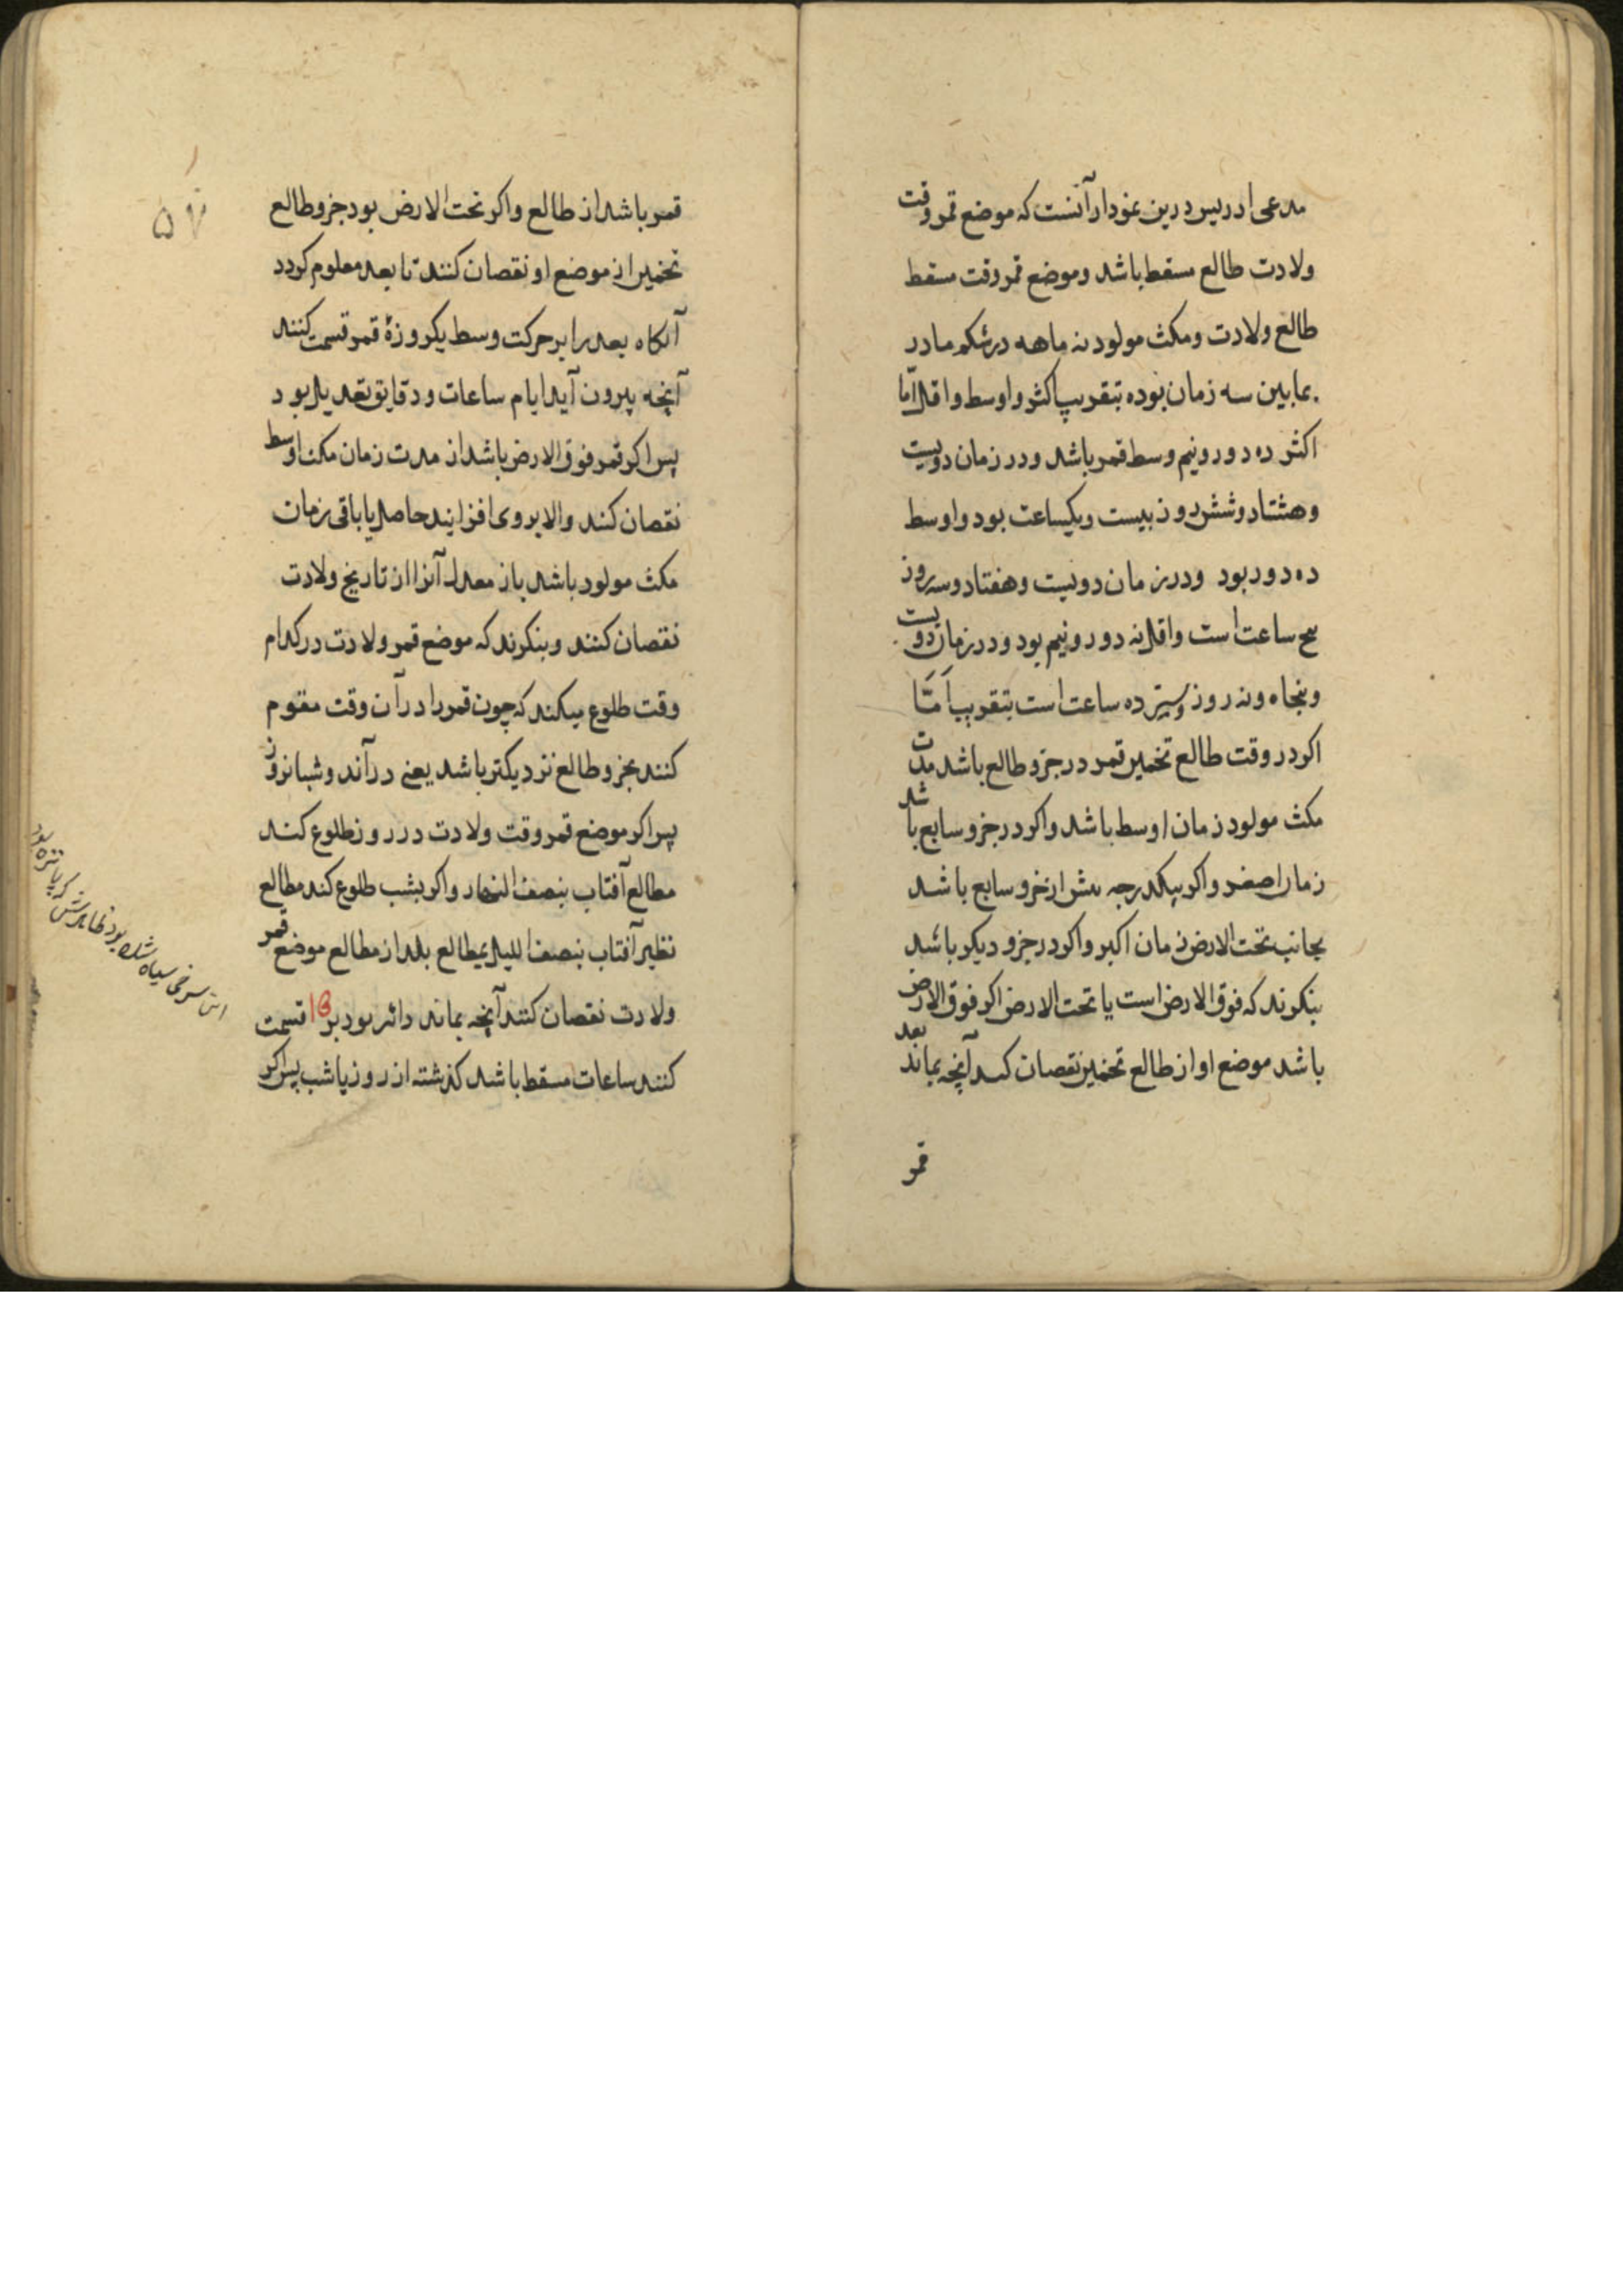 مدعی ادریس درین نمودار آنست که موضع قمر وقت
ولادت طالع مسقط باشد وموضع قمر وقت مسقط
طالع ولادت ومکث مولود نه ماهه در شکم مادر
بمابین سه زمان بوده بتقریب اکثر واوسط واقل اما
اکثر ده دور ونیم وسط قمر باشد ودر زمان دویست
وهشتاد وشش روز بیست ویکساعت بود واوسط
ده دور بود ودر زمان دویست وهفتاد وسه روز
ساعت است واقل نه دور ونیم بود ودر زمان دویست
وپنجاه ونه روز ده ساعت است بتقریب امّا
اکر در وقت طالع تخمین قمر در جزو طالع باشد مدت
مکث مولود زمان اوسط باشد واکر در جزو سابع باشد
زمان اصغر واکر بیکدرجه بیش از جزو سابع باشد
بجانب تحت الارض زمان اکبر واکر در جزو دیکر باشد
بنکرند که فوق الارض است یا تحت الارض اکر فوق الارض
باشد موضع او از طالع تخمین نقصان کنند آنچه بماند بعد
قمر
۵۷
قمر باشد از طالع واکر تحت الارض بود جزو طالع
تخمین از موضع او نقصان کنند تا بعد معلوم کردد
آنکاه بعد را بر حرکت وسط یکروزۀ قمر قسمت کنند
آنچه بیرون آید ایام ساعات ودقایق تعدیل بود
پس اکر قمر فوق الارض باشد از مدت زمان مکث اوسط
نقصان کنند والا بروی افزایند حاصل یا باقی زمان
مکث مولود باشد باز معدل آنرا از تاریخ ولادت
نقصان کنند وبنکرند که موضع قمر ولادت در کدام
وقت طلوع میکند که چون قمر را در آن وقت مقوم
کنند بجزو طالع نزدیکتر باشد یعنی در آند وشبانروز
پس اکر موضع قمر وقت ولادت در روز طلوع کند
مطالع آفتاب بنصف النهار واکر بشب طلوع کند مطالع
نظیر آفتاب بنصف اللیل بمطالع بلد از مطالع موضع قمر
ولادت نقصان کنند آنچه بماند دائر بود بر قسمت
کنند ساعات مسقط باشد کذشته از روز یا شب پس اکر
این سرخی سیاه شده بود ظاهرش که پانزده بود